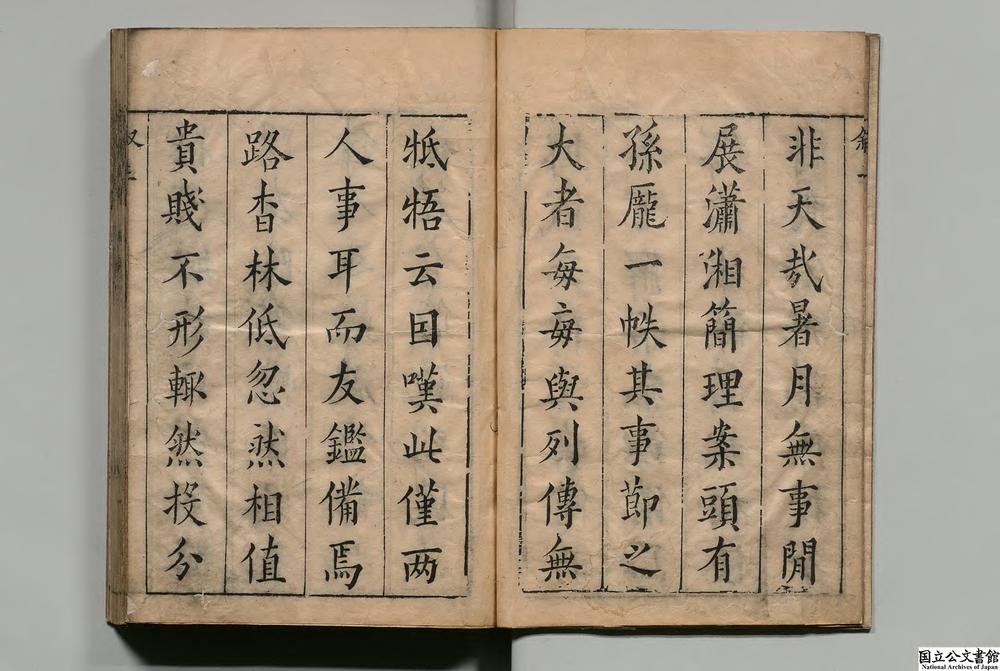 非天哉暑月無事閒
展瀟湘簡理案頭有
孫龐一帙其事節之
大者每每與列傳無
牴牾云因嘆此僅两
人事耳而友鑑備焉
路杳林低忽然相值
貴賤不形輙然投分
国立公文書館
National Archives of Japan